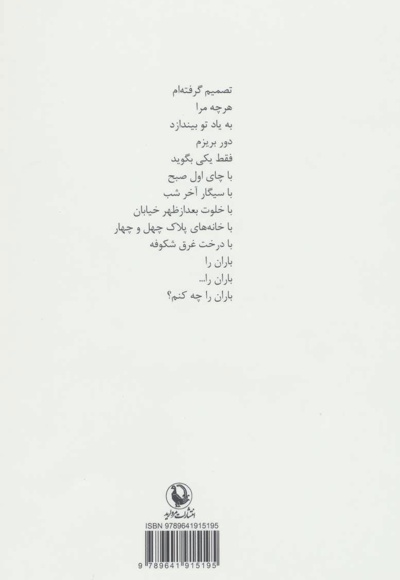 تصمیم گرفته‌ام
هرچه مرا
به یاد تو بیندازد
دور بریزم
فقط یکی بگوید
با چای اول صبح
با سیگار آخر شب
با خلوت بعدازظهر خیابان
با خانه‌های پلاک چهل و چهار
با درخت غرق شکوفه
باران را
باران را...
باران را چه کنم؟
انتشارات مروارید
ISBN 9789641915195
9 789641 915195